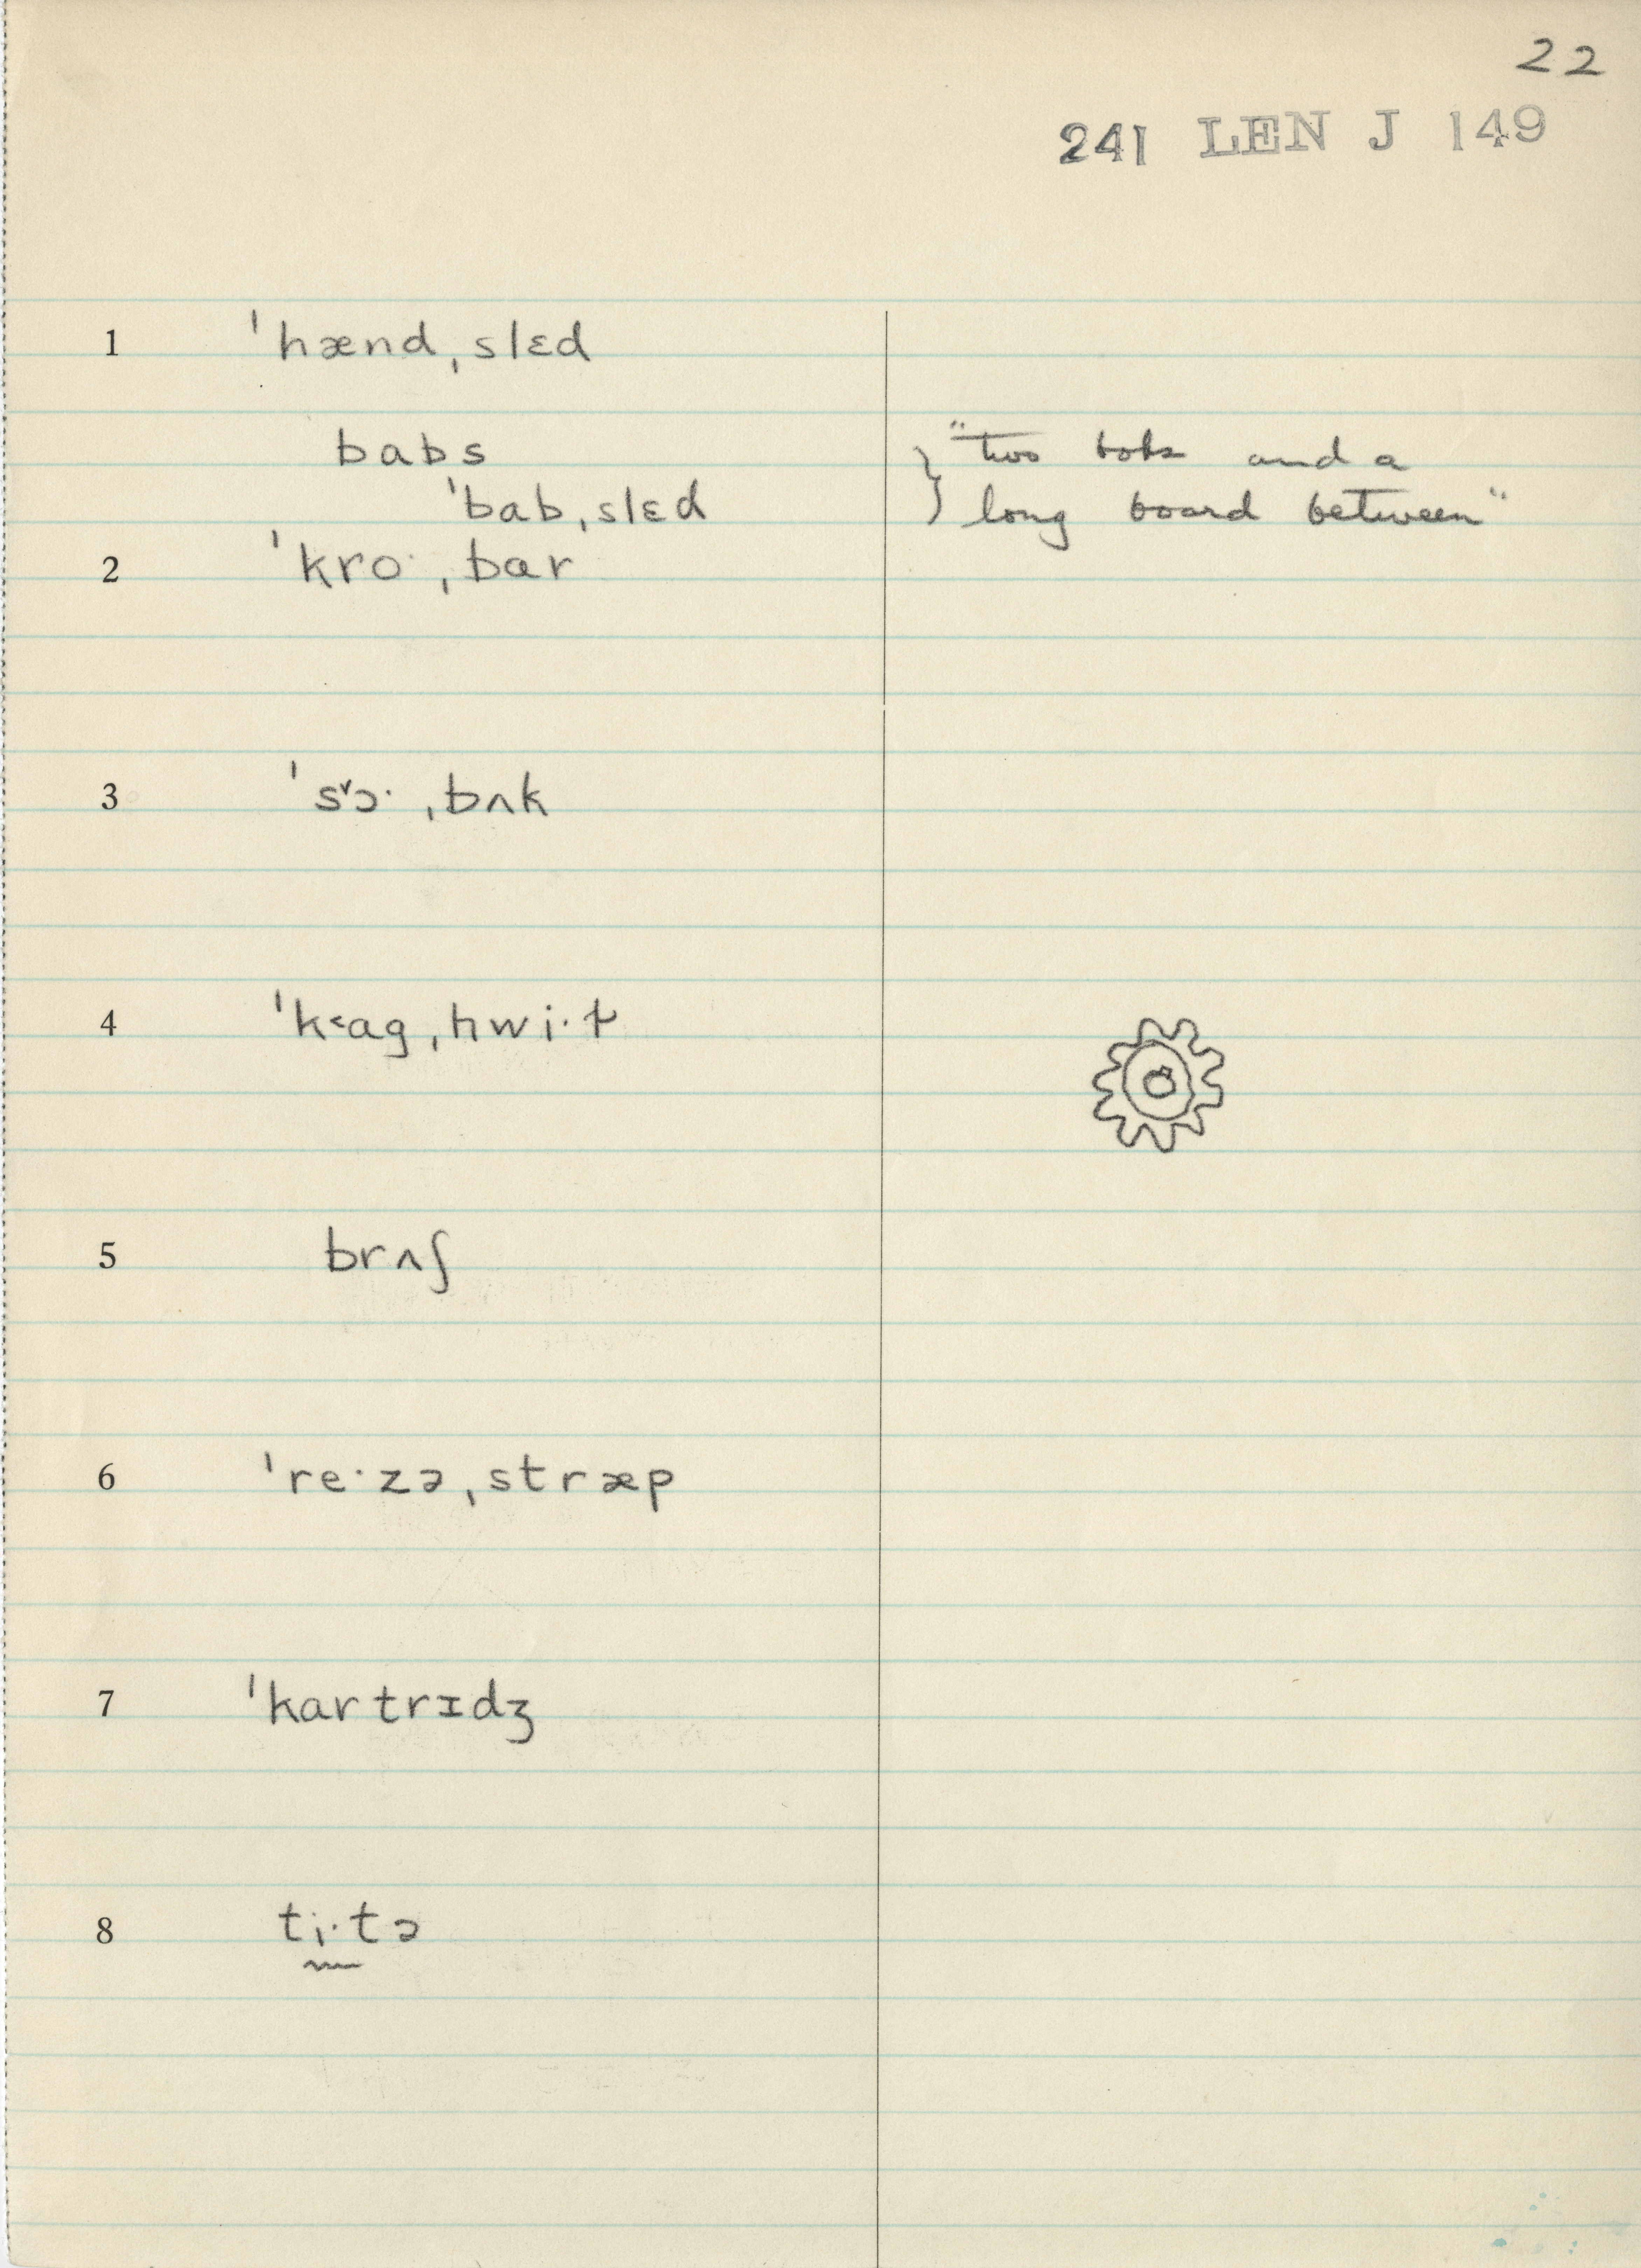 22
241 LEN J 149
1 ˈhænd ˌslɛd
babs "two bobs and a
ˈbab ˌslɛd long board between"
2 ˈkro· ˌbar
3 ˈs˅ɔ· ˌbʌk
4 ˈk˂ag ˌhwi·ɫ
5 brʌʃ
6 ˈre·zə ˌstræp
7 ˈkartrɪdʒ
8 ti·tə